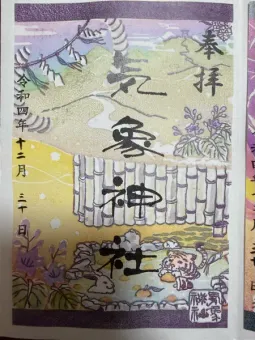 奉拝
気象神社
令和四年十二月三十日